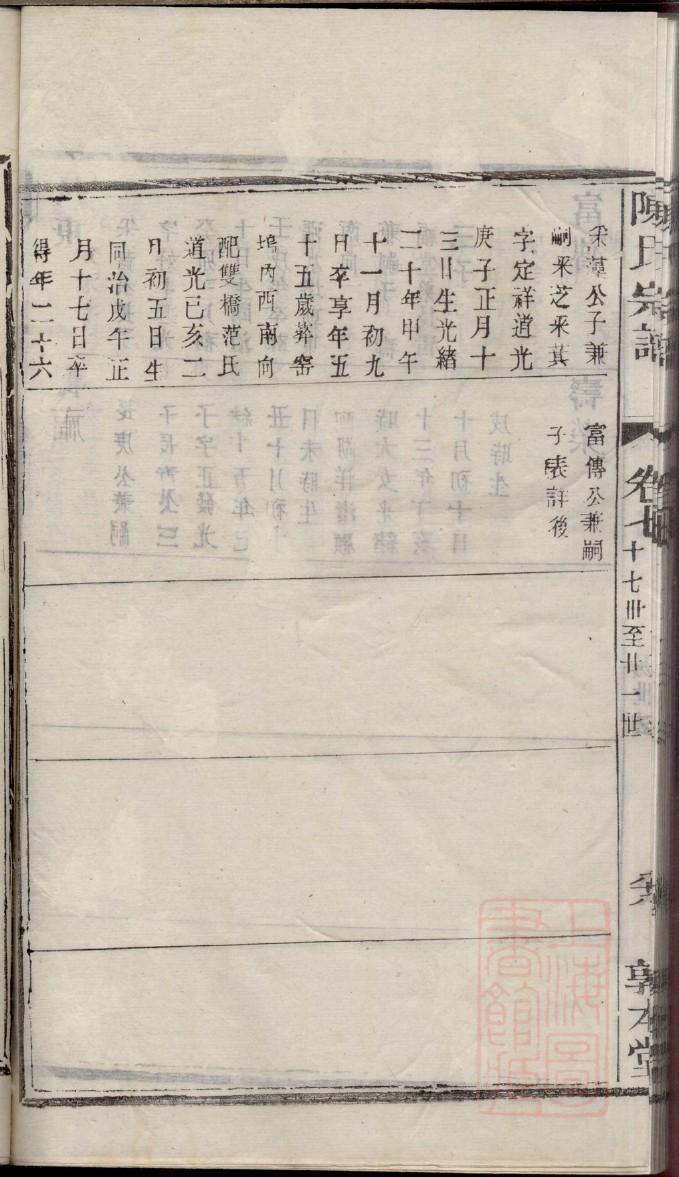 陳氏宗譜
卷七
十七卅至卄一世
敦本堂
采藻公子兼
嗣采芝采萁
字定祥道光
庚子正月十
三日生光緒
二十年甲午
十一月初九
日卒享年五
十五歲葬窑
塢內西南向
配雙橋范氏
道光已亥二
月初五日生
同治戊午正
月十七日卒
得年二十六
富傳公兼嗣
子表詳後
上海圖書館藏